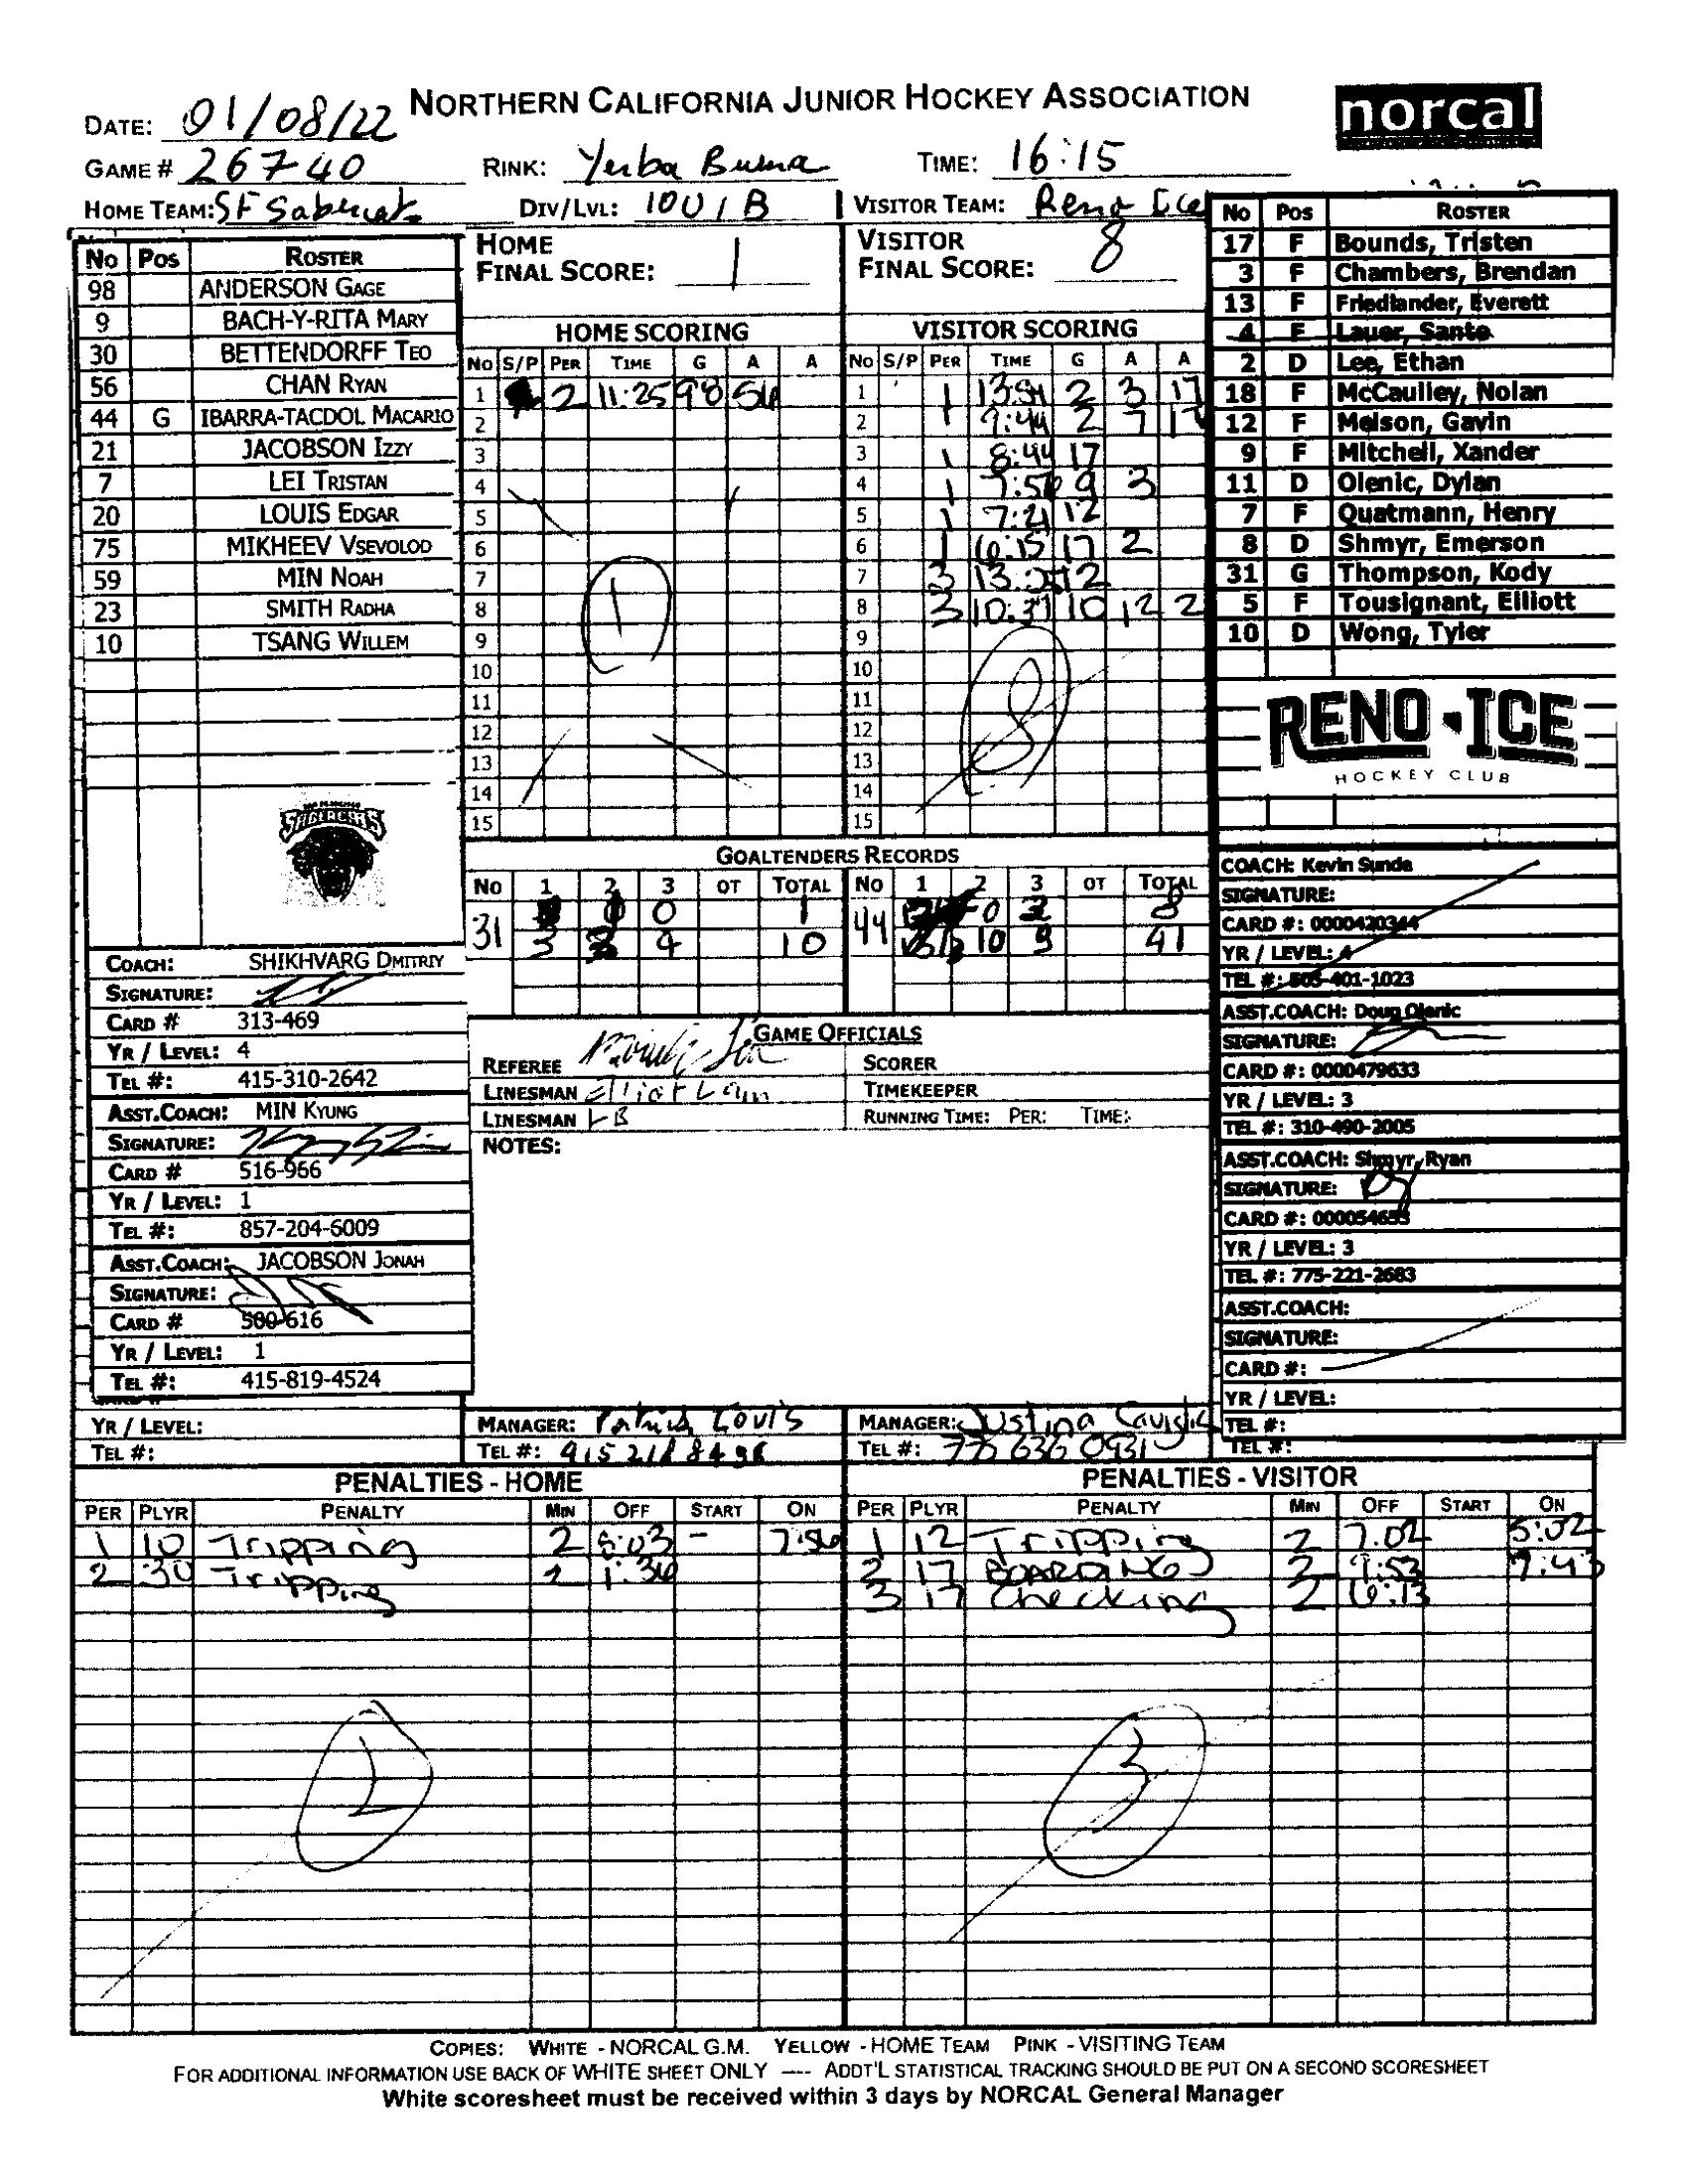 NORTHERN CALIFORNIA JUNIOR HOCKEY ASSOCIATION
norcal
DATE: 01/08/22
GAME # 26740 RINK: Yerba Buena TIME: 16:15
HOME TEAM: SF Sabercats DIV/LVL: 10U / B VISITOR TEAM: Reno Ice
HOME FINAL SCORE: 1 VISITOR FINAL SCORE: 8
No Pos ROSTER
98 ANDERSON GAGE
9 BACH-Y-RITA MARY
30 BETTENDORFF TEO
56 CHAN RYAN
44 G IBARRA-TACDOL MACARIO
21 JACOBSON IZZY
7 LEI TRISTAN
20 LOUIS EDGAR
75 MIKHEEV VSEVOLOD
59 MIN NOAH
23 SMITH RADHA
10 TSANG WILLEM
SABERCATS
COACH: SHIKHVARG DMITRIY
SIGNATURE:
CARD # 313-469
YR / LEVEL: 4
TEL #: 415-310-2642
ASST.COACH: MIN KYUNG
SIGNATURE:
CARD # 516-966
YR / LEVEL: 1
TEL #: 857-204-6009
ASST.COACH: JACOBSON JONAH
SIGNATURE:
CARD # 500-616
YR / LEVEL: 1
TEL #: 415-819-4524
YR / LEVEL:
TEL #:
HOME SCORING
No S/P PER TIME G A A
1 2 11:25 98 56
2
3
4
5
6
7
8
9
10
11
12
13
14
15
1
VISITOR SCORING
No S/P PER TIME G A A
1 1 13:54 2 3 17
2 1 9:44 2 7 17
3 1 8:44 17
4 1 7:56 9 3
5 1 7:21 12
6 1 6:15 17 2
7 3 13:05 12
8 3 10:37 10 12 2
9
10
11
12
13
14
15
8
GOALTENDERS RECORDS
No 1 2 3 OT TOTAL No 1 2 3 OT TOTAL
31 0 1 44 0 2 8
3 4 10 10 9 41
GAME OFFICIALS
REFEREE SCORER
LINESMAN Elliot Lam TIMEKEEPER
LINESMAN LB RUNNING TIME: PER: TIME:
NOTES:
MANAGER: Patrick Louis MANAGER: Justina
TEL #: 415 218 8496 TEL #: 775 636 0931
No Pos ROSTER
17 F Bounds, Tristen
3 F Chambers, Brendan
13 F Friedlander, Everett
4 F Lauer, Sante
2 D Lee, Ethan
18 F McCaulley, Nolan
12 F Melson, Gavin
9 F Mitchell, Xander
11 D Olenic, Dylan
7 F Quatmann, Henry
8 D Shmyr, Emerson
31 G Thompson, Kody
5 F Tousignant, Elliott
10 D Wong, Tyler
RENO ICE
HOCKEY CLUB
COACH: Kevin Sunde
SIGNATURE:
CARD #: 0000420344
YR / LEVEL: 4
TEL #: 505-401-1023
ASST.COACH: Doug Olenic
SIGNATURE:
CARD #: 0000479633
YR / LEVEL: 3
TEL #: 310-490-2005
ASST.COACH: Shmyr, Ryan
SIGNATURE:
CARD #: 000054653
YR / LEVEL: 3
TEL #: 775-221-2683
ASST.COACH:
SIGNATURE:
CARD #:
YR / LEVEL:
TEL #:
TEL #:
PENALTIES - HOME
PER PLYR PENALTY MIN OFF START ON
1 10 Tripping 2 6:03 - 7:56
2 30 Tripping 2 1:36
2
PENALTIES - VISITOR
PER PLYR PENALTY MIN OFF START ON
1 12 Tripping 2 7:02 5:02
2 17 BOARDING 2 9:53 7:43
3 17 Checking 2 6:13
3
COPIES: WHITE - NORCAL G.M. YELLOW - HOME TEAM PINK - VISITING TEAM
FOR ADDITIONAL INFORMATION USE BACK OF WHITE SHEET ONLY ---- ADDT'L STATISTICAL TRACKING SHOULD BE PUT ON A SECOND SCORESHEET
White scoresheet must be received within 3 days by NORCAL General Manager